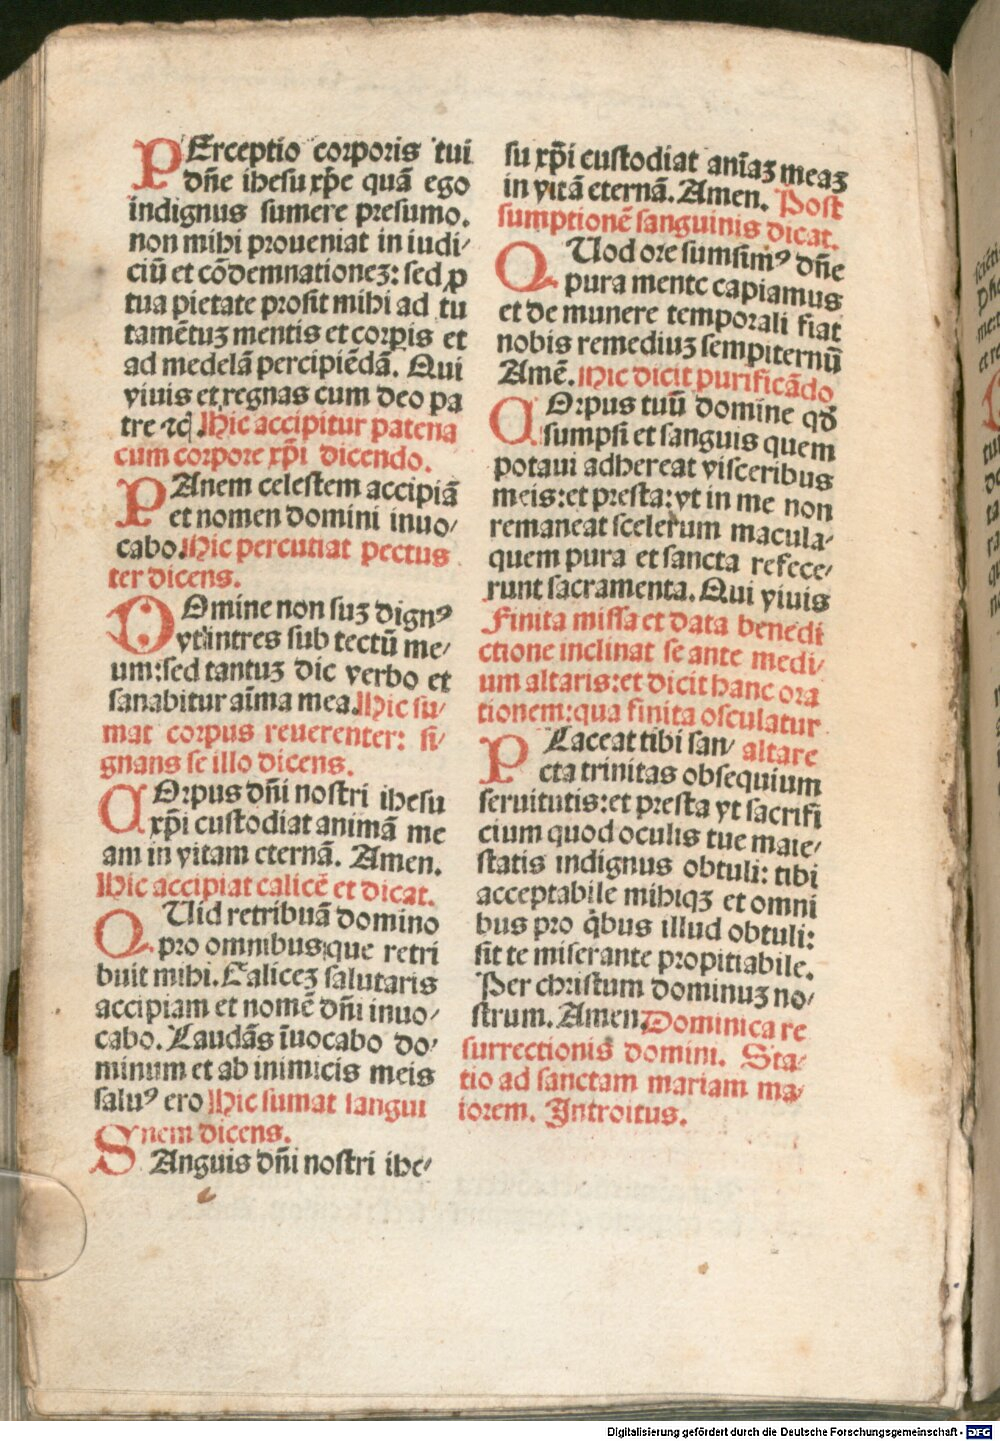 PErceptio corporis tui
dn̄e ihesu xp̄e quā ego
indignus sumere presumo.
non mihi proueniat in iudi/
ciū et cōdemnationeꝫ: sed ꝓ
tua pietate prosit mihi ad tu
tamētuꝫ mentis et corꝑis et
ad medelā percipiēdā. Qui
viuis et regnas cum deo pa
tre ⁊cꝭ. Hic accipitur patena
cum corpore xp̄i dicendo.
PAnem celestem accipiā
et nomen domini inuo/
cabo. Hic percutiat pectus
ter dicens.
DOmine non suꝫ dignꝰ
vt intres sub tectū me/
um: sed tantuꝫ dic verbo et
sanabitur aīma mea. Hic su/
mat corpus reuerenter: si/
gnans se illo dicens.
COrpus dn̄i nostri ihesu
xp̄i custodiat animā me
am in vitam eternā. Amen.
Hic accipiat calicē et dicat.
QUid retribuā domino
pro omnibus que retri
buit mihi. Caliceꝫ salutaris
accipiam et nomē dn̄i inuo/
cabo. Laudās īuocabo do/
minum et ab inimicis meis
saluꝰ ero Hic sumat sangui
nem dicens.
SAnguis dn̄i nostri ihe/
su xp̄i custodiat anīaꝫ meaꝫ
in vitā eternā. Amen. Post
sumptionē sanguinis dicat.
QUod ore sumsimꝰ dn̄e
pura mente capiamus
et de munere temporali fiat
nobis remediuꝫ sempiternū
Amē. Hic dicit purificādo
COrpus tuū domine qđ
sumpsi et sanguis quem
potaui adhereat visceribus
meis: et presta: vt in me non
remaneat scelerum macula/
quem pura et sancta refece/
runt sacramenta. Qui viuis
Finita missa et data benedi
ctione inclinat se ante medi/
um altaris: et dicit hanc ora
tionem: qua finita osculatur
PLaceat tibi san/ altare
cta trinitas obsequium
seruitutis: et presta vt sacrifi
cium quod oculis tue maie/
statis indignus obtuli: tibi
acceptabile mihiqꝫ et omni
bus pro q̄bus illud obtuli:
sit te miserante propitiabile.
Per christum dominuꝫ no/
strum. Amen. Dominica re
surrectionis domini. Sta/
tio ad sanctam mariam ma/
iorem. Introitus.
Digitalisierung gefördert durch die Deutsche Forschungsgemeinschaft - DFG